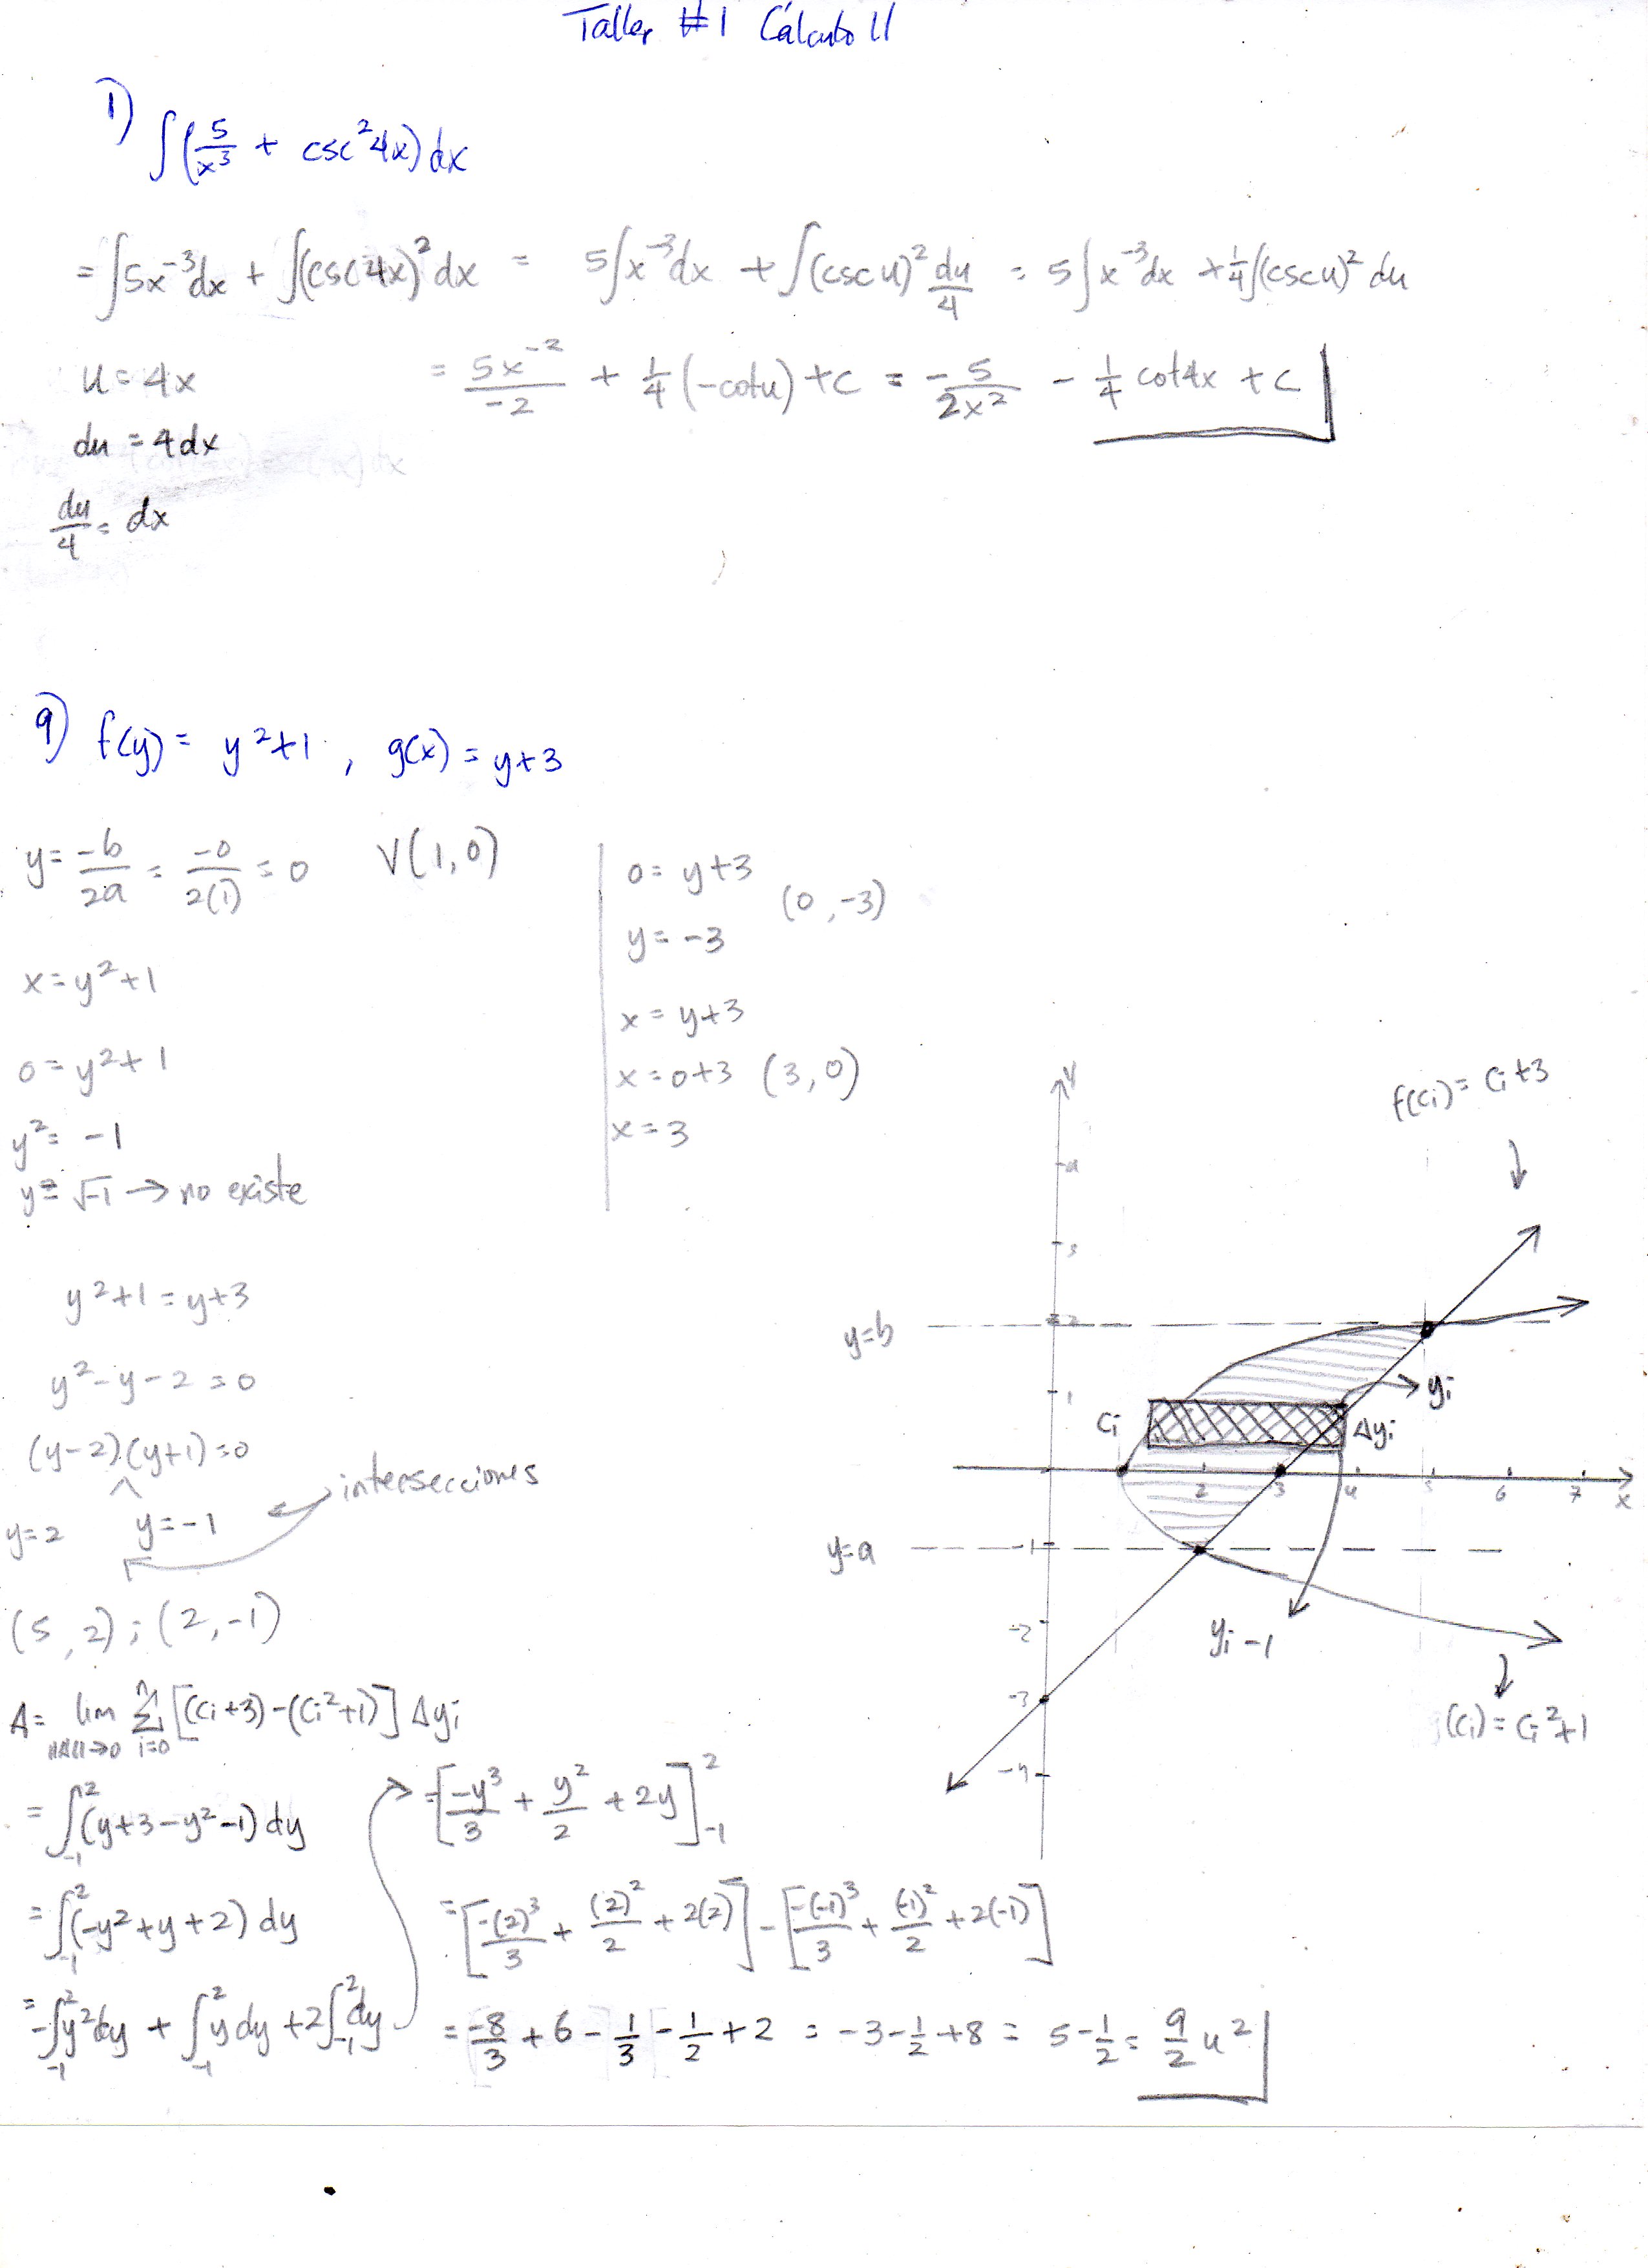 Taller #1 Cálculo II
1) ∫(5/x³ + csc²4x)dx
= ∫5x⁻³dx + ∫(csc 4x)²dx = 5∫x⁻³dx + ∫(csc u)² du/4 = 5∫x⁻³dx + 1/4∫(csc u)² du
u = 4x
= 5x⁻²/-2 + 1/4(-cot u) + c = -5/2x² - 1/4 cot4x + c
du = 4dx
du/4 = dx
9) f(y) = y²+1, g(x) = y+3
y = -b/2a = -0/2(1) = 0 V(1,0)
x = y²+1
0 = y²+1
y² = -1
y = √-1 → no existe
0 = y+3 (0,-3)
y = -3
x = y+3
x = 0+3 (3,0)
x = 3
y²+1 = y+3
y²-y-2 = 0
(y-2).(y+1) = 0
^
y=2 y=-1 intersecciones
(5,2); (2,-1)
A = lim ||Δ||→0 n Σ i=0 [(ci+3)-(ci²+1)] Δyi
= ∫₋₁²(y+3-y²-1) dy
= ∫₋₁²(-y²+y+2) dy
= -∫₋₁²y²dy + ∫₋₁²y dy + 2∫₋₁²dy
= [-y³/3 + y²/2 + 2y]₋₁²
= [-(2)³/3 + (2)²/2 + 2(2)] - [-(-1)³/3 + (-1)²/2 + 2(-1)]
= -8/3 + 6 - 1/3 - 1/2 + 2 = -3 - 1/2 + 8 = 5 - 1/2 = 9/2 u²
f(ci) = ci+3
y
4
3
y=b
2
yi
1
ci
Δyi
2 3 4 5 6 7 x
y=a
-1
-2
yi-1
-3
(ci) = ci²+1
-4